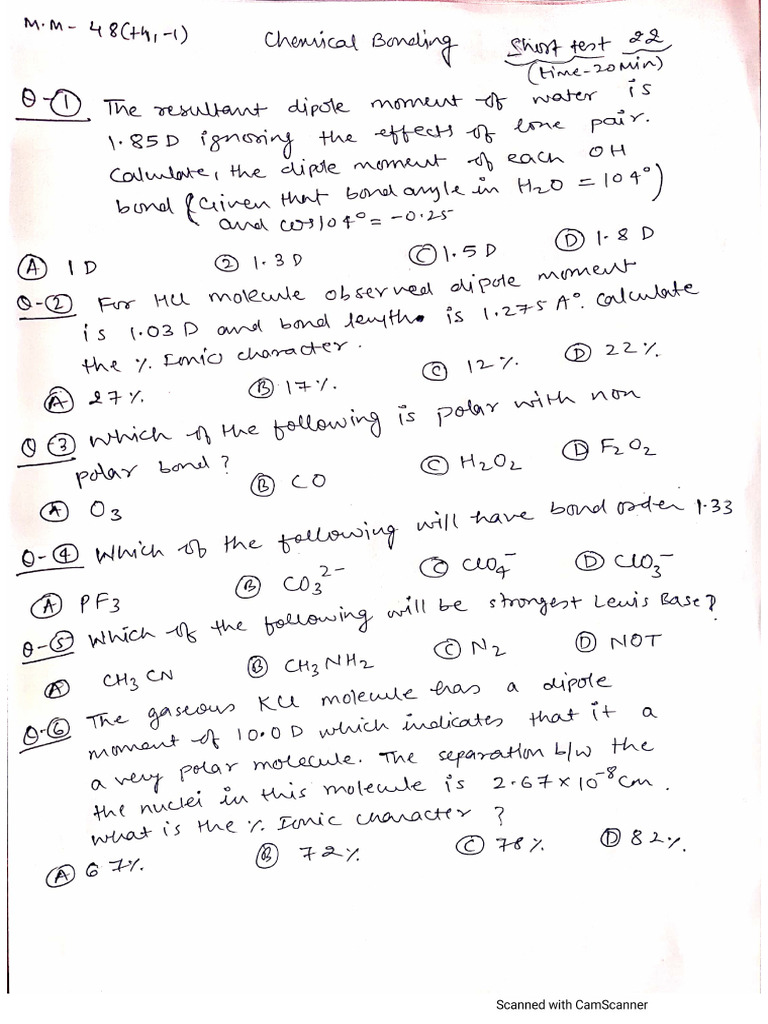 M.M- 48(+4,-1)
Chemical Bonding
Short test 22
(time-20 Min)
Q-① The resultant dipole moment of water is
1.85 D ignoring the effects of lone pair.
Calculate, the dipole moment of each OH
bond (Given that bond angle in H₂O = 104°)
and cos104° = -0.25
Ⓐ 1 D ② 1.3 D Ⓒ 1.5 D Ⓓ 1.8 D
Q-② For HCl molecule observed dipole moment
is 1.03 D and bond length is 1.275 A°. Calculate
the % Ionic character.
Ⓐ 27% Ⓑ 17% Ⓒ 12% Ⓓ 22%
Q-③ Which of the following is polar with non
polar bond?
Ⓐ O₃ Ⓑ CO Ⓒ H₂O₂ Ⓓ F₂O₂
Q-④ Which of the following will have bond order 1.33
Ⓐ PF₃ Ⓑ CO₃²⁻ Ⓒ ClO₄⁻ Ⓓ ClO₃⁻
Q-⑤ Which of the following will be strongest Lewis Base?
Ⓐ CH₃CN Ⓑ CH₃NH₂ Ⓒ N₂ Ⓓ NOT
Q-⑥ The gaseous KCl molecule has a dipole
moment of 10.0 D which indicates that it a
a very polar molecule. The separation b/w the
the nuclei in this molecule is 2.67×10⁻⁸cm.
what is the % Ionic character ?
Ⓐ 67% Ⓑ 72% Ⓒ 78% Ⓓ 82%.
Scanned with CamScanner